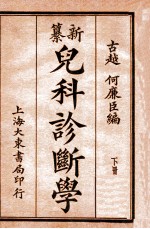 古越 何廉臣編
下冊
新纂
兒科診斷學
上海大東書局印行